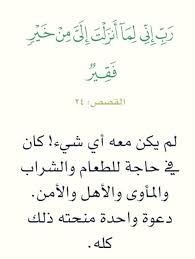 رَبِّ إِنِّى لِمَا أَنزَلْتَ إِلَىَّ مِنْ خَيْرٍ
فَقِيرٌ
القصص: ٢٤
لم يكن معه أي شيء! كان
في حاجة للطعام والشراب
والمأوى والأهل والأمن.
دعوة واحدة منحته ذلك
كله.